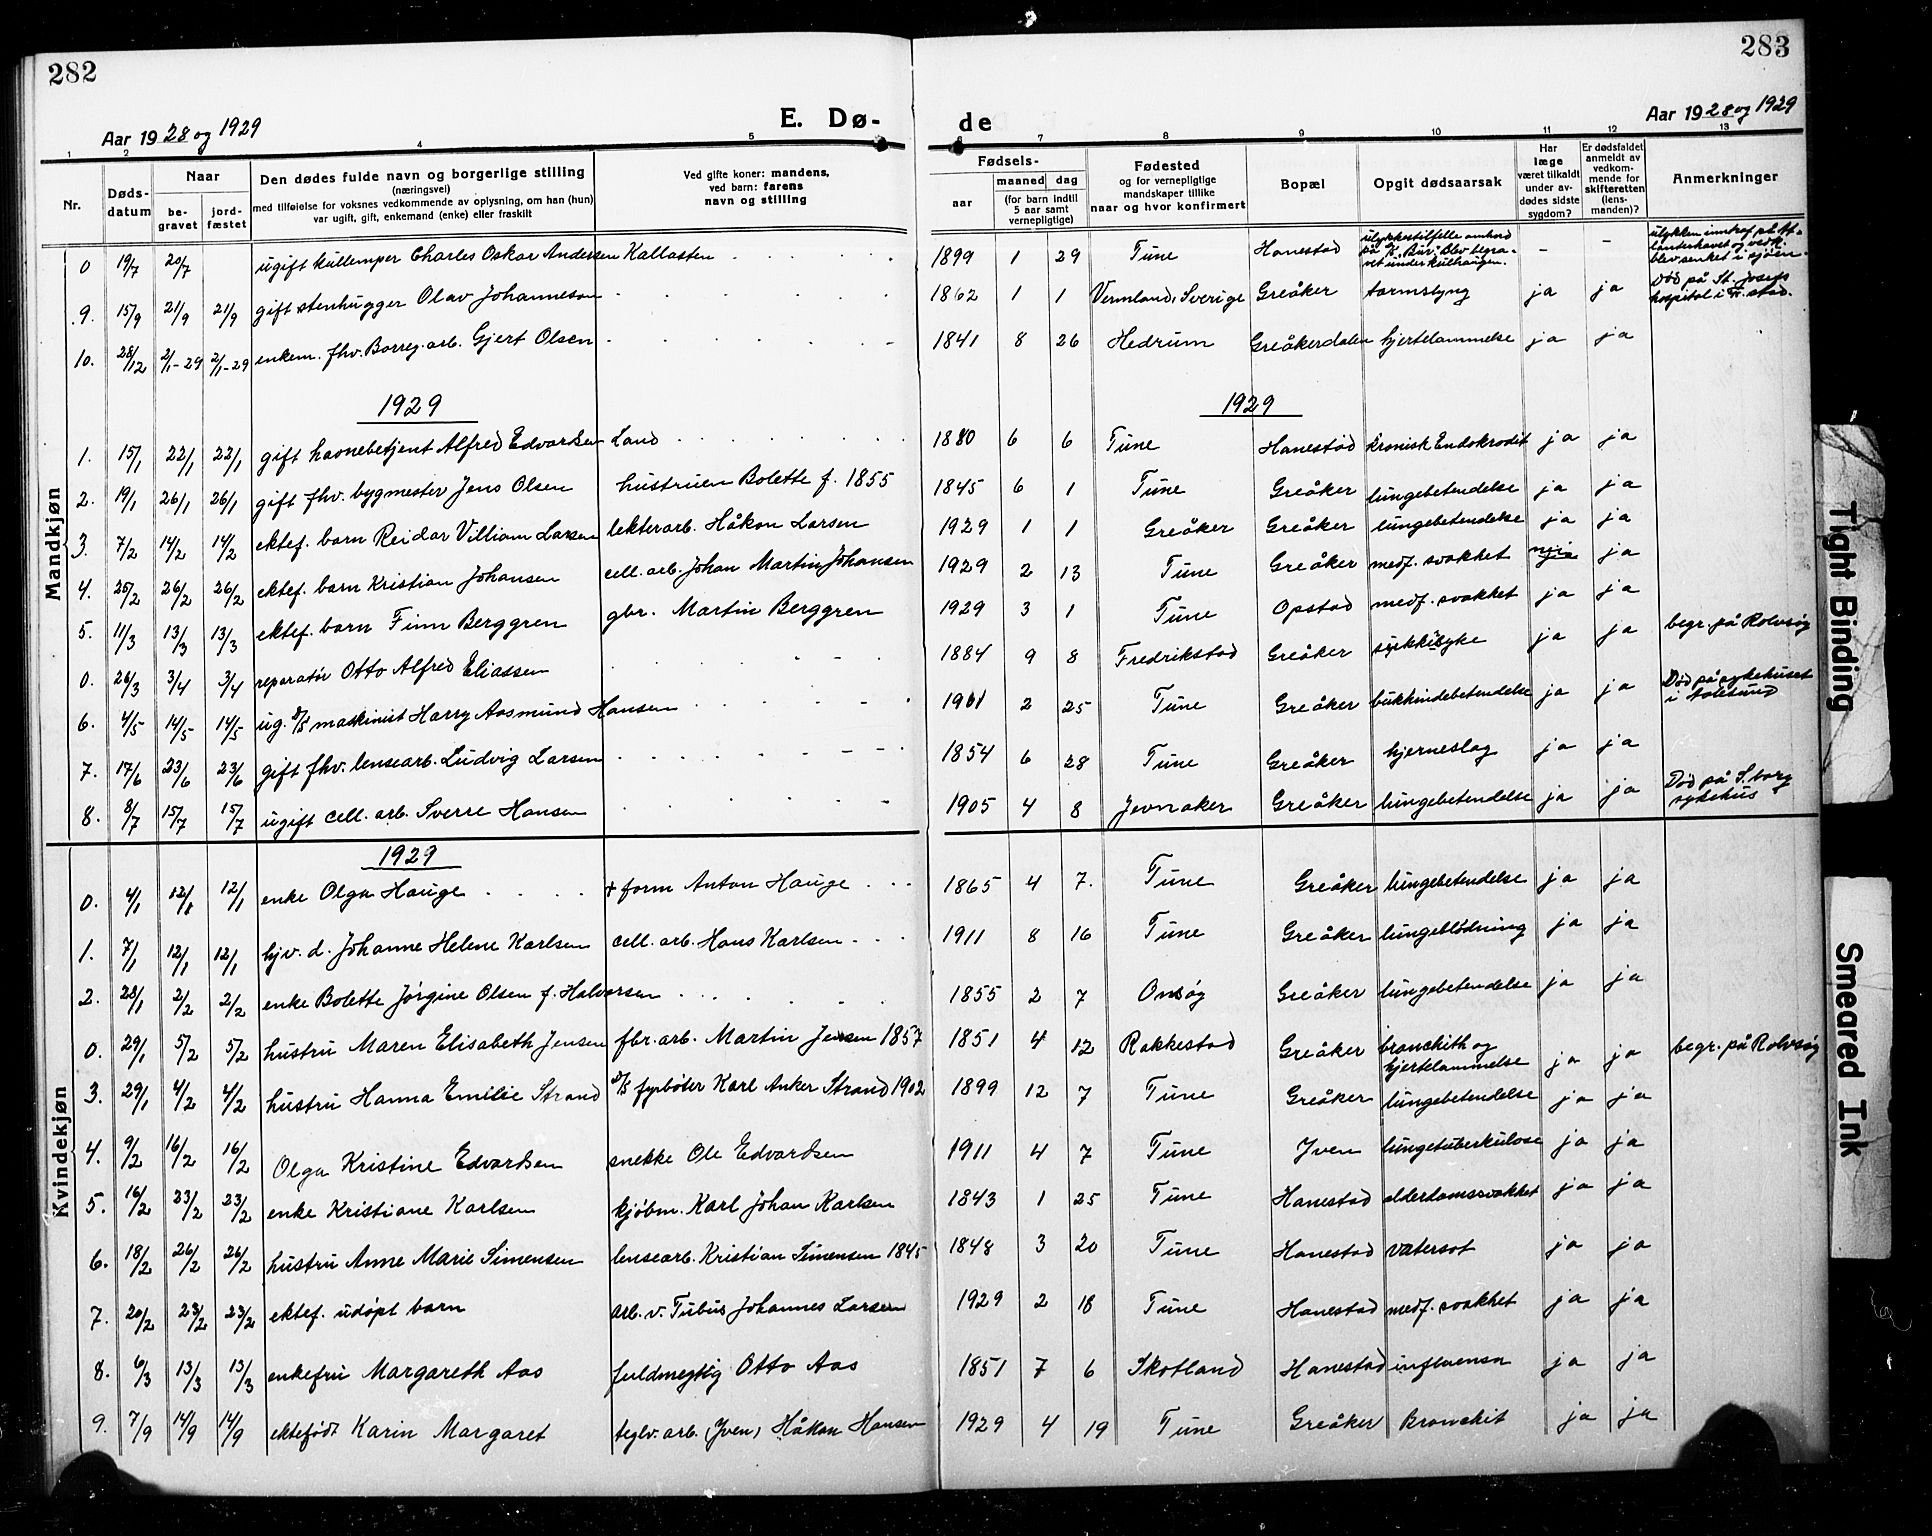 282
283
Aar 1928 og 1929
E. Dø-
de
Aar 1928 og 1929
1 2 4 5 6 7 8 9 10 11 12 13
Nr.
Døds-datum
Naar
be-gravet
jord-fæstet
Den dødes fulde navn og borgerlige stilling
(næringsvei)
med tilføielse for voksnes vedkommende av oplysning, om han (hun)
var ugift, gift, enkemand (enke) eller fraskilt
Ved gifte koner: mandens,
ved barn: farens
navn og stilling
Fødsels-
aar
maaned
dag
(for barn indtil
5 aar samt
vernepligtige)
Fødested
og for vernepligtige
mandskaper tillike
naar og hvor konfirmert
Bopæl
Opgit dødsaarsak
Har
læge
været tilkaldt
under av-
dødes sidste
sygdom?
Er dødsfaldet
anmeldt av
vedkom-
mende for
skifteretten
(lens-
manden)?
Anmerkninger
Mandkjøn
0 19/7 20/7 ugift kullemper Charles Oskar Andersen Kallasten 1899 1 29 Tune Hanestad ulykkestilfelle ombord på "K. Bur." Blev begravet under kulhaugen. - - ulykken inntraf på Atlanterhavet og vedk. blev senket i sjøen.
9. 15/9 21/9 21/9 gift stenhugger Olav Johanneson 1862 1 1 Vermland, Sverige Greåker tarmslyng ja ja Død på St. Josefs hospital i Fr.stad.
10. 28/12 2/1-29 2/1-29 enkem. fhv. Borreg. arb. Gjert Olsen 1841 8 26 Hedrum Greåkerdalen hjertelammelse ja ja
1929
1929
1. 15/1 22/1 22/1 gift havnebetjent Alfred Edvardsen Land 1880 6 6 Tune Hanestad kronisk Endokrodit ja ja
2. 19/1 26/1 26/1 gift fhv. bygmester Jens Olsen hustruen Bolette f. 1855 1845 6 1 Tune Greåker lungebetendelse ja ja
3. 7/2 14/2 14/2 ektef. barn Reidar Villiam Larsen lekterarb. Håkon Larsen 1929 1 1 Greåker Greåker lungebetendelse ja ja
4. 25/2 26/2 26/2 ektef. barn Kristian Johansen cell. arb. Johan Martin Johansen 1929 2 13 Tune Greåker medf. svakhet nei ja
5. 11/3 13/3 13/3 ektef. barn Finn Berggren gbr. Martin Berggren 1929 3 1 Tune Opstad medf. svakhet ja ja
0. 26/3 3/4 3/4 reparatør Otto Alfred Eliassen 1884 9 8 Fredrikstad Greåker sukkisyke ja ja begr. på Rolvsøy
6. 4/5 14/5 14/5 ug. d/s maskinist Harry Aasmund Hansen 1901 2 25 Tune Greåker bukhindebetendelse ja ja Død på sykehuset i Aalesund
7. 17/6 23/6 23/6 gift fhv. lensearb. Ludvig Larsen 1854 6 28 Tune Greåker hjerneslag ja ja
8. 8/7 15/7 15/7 ugift cell. arb. Sverre Hansen 1905 4 8 Jevnaker Greåker lungebetendelse ja ja Død på S.borg sykehus
Kvindekjøn
1929
0. 4/1 12/1 12/1 enke Olga Hauge + form Anton Hauge 1865 4 7. Tune Greåker lungebetendelse ja ja
1. 7/1 12/1 12/1 hjv. d. Johanne Helene Karlsen cell. arb. Hans Karlsen 1911 8 16 Tune Greåker lungeblødning ja ja
2. 28/1 2/2 2/2 enke Bolette Jørgine Olsen f. Halvorsen 1855 2 7 Onsøy Greåker lungebetendelse ja ja
0. 29/1 5/2 5/2 hustru Maren Elisabeth Jensen fbr. arb. Martin Jensen 1857 1851 4 12 Rakkestad Greåker bronchith og hjertelammelse ja ja begr. på Rolvsøy
3. 29/1 4/2 4/2 hustru Hanna Emilie Strand d/s fyrbøter Karl Anker Strand 1902 1899 12 7 Tune Greåker lungebetendelse ja ja
4. 9/2 16/2 16/2 Olga Kristine Edvardsen snekke Ole Edvardsen 1911 4 7 Tune Yven lungetuberkulose ja ja
5. 16/2 23/2 23/2 enke Kristiane Karlsen kjøbm. Karl Johan Karlsen 1843 1 25 Tune Hanestad alderdomssvakhet ja ja
6. 18/2 26/2 26/2 hustru Anne Marie Simensen lensearb. Kristian Simensen 1845 1848 3 20 Tune Hanestad vatersot ja ja
7. 20/2 23/2 23/2 ektef. udøpt barn arb. v. Tubus Johannes Larsen 1929 2 18 Tune Hanestad medf. svakhet ja ja
8. 6/3 13/3 13/3 enkefru Margareth Aas fuldmegtig Otto Aas 1851 7 6 Skotland Hanestad influensa ja ja
9. 7/9 14/9 14/9 ektefødt Karin Margaret teglv. arb. (Yven) Håkon Hansen 1929 4 19 Tune Greåker Bronchit ja ja
Tight Binding
Smeared Ink